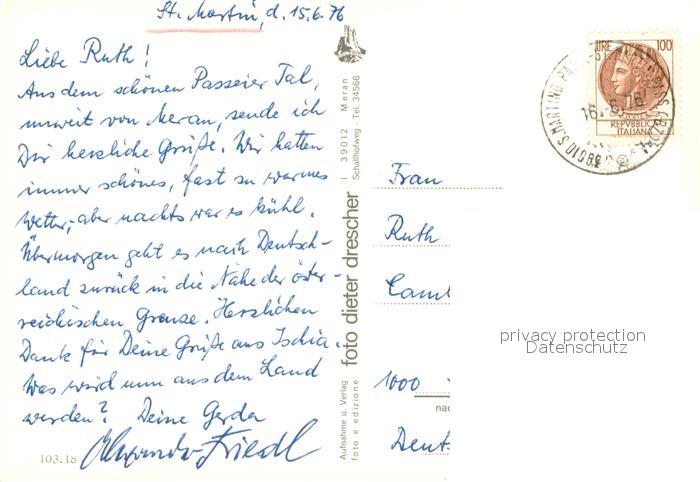 St. Martin, d. 15.6.76
Liebe Ruth!
Aus dem schönen Passeier Tal,
unweit von Meran, sende ich
Dir herzliche Grüße. Wir hatten
immer schönes, fast zu warmes
Wetter, aber nachts war es kühl.
Übermorgen geht es nach Deutsch-
land zurück in die Nähe der öster-
reichischen Grenze. Herzlichen
Dank für Deine Grüße aus Ischia.
Was wird nun aus dem Land
werden? Deine Gerda
Friedl
103.18
Aufnahme u. Verlag
foto e edizione
foto dieter drescher
I 39012 Meran
Schallhofweg · Tel. 34566
LIRE 100
REPVBBLICA
ITALIANA
39010 S. MARTINO
16.6.76
Frau
Ruth
1000
nac
Deut
privacy protection
Datenschutz